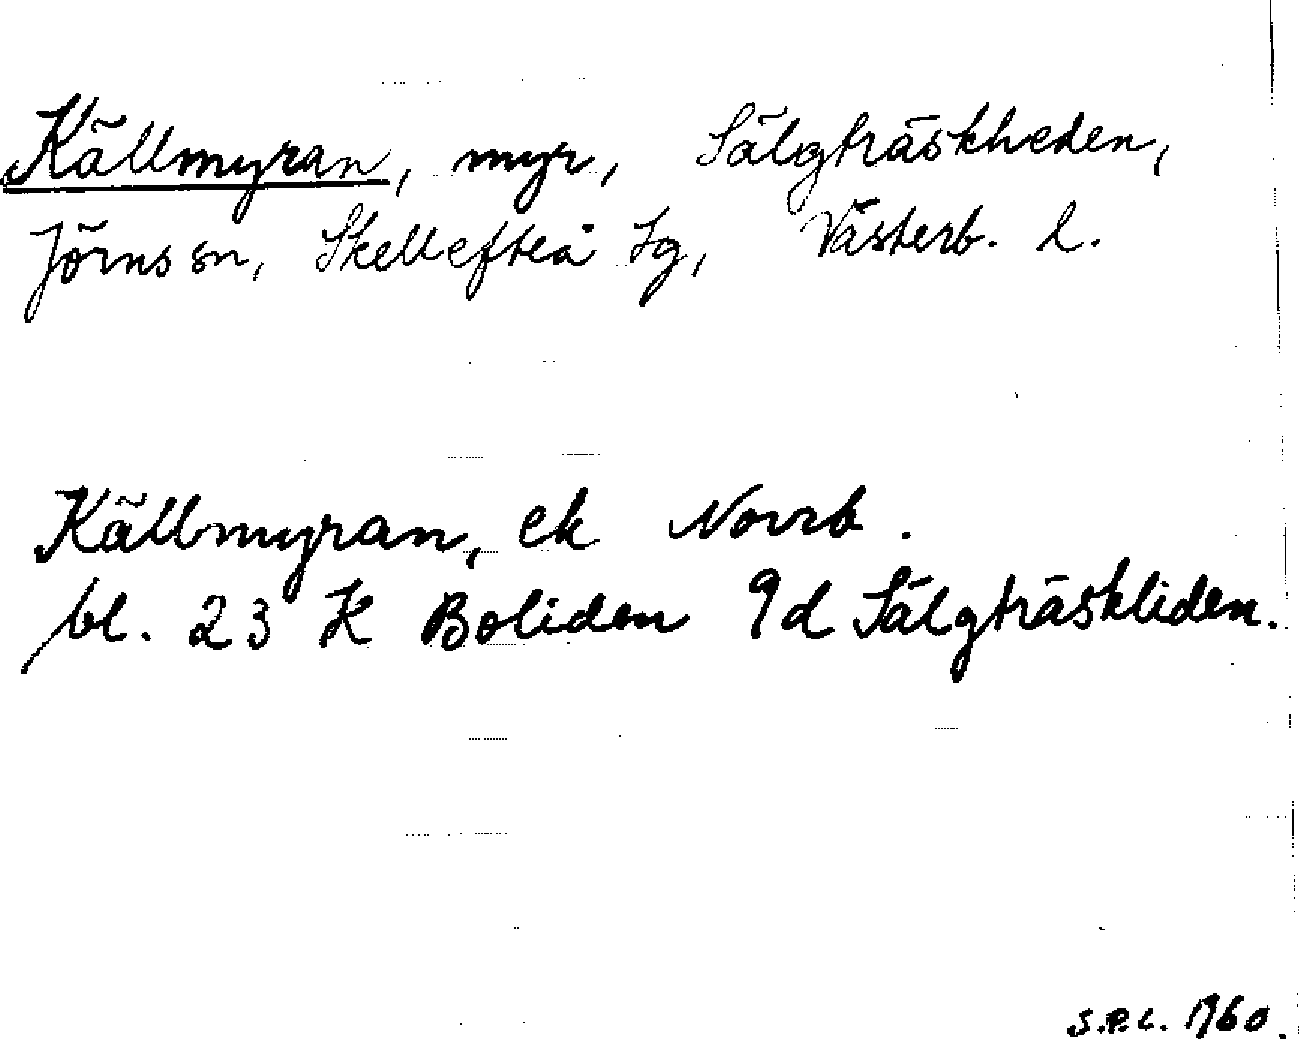 Källmyran, myr, Sälgträskheden,
Jörns sn, Skellefteå tg, Västerb. l.
Källmyran, ek Norrb.
bl. 23 K Boliden 9d Sälgträskliden.
S.P.L. 1960.